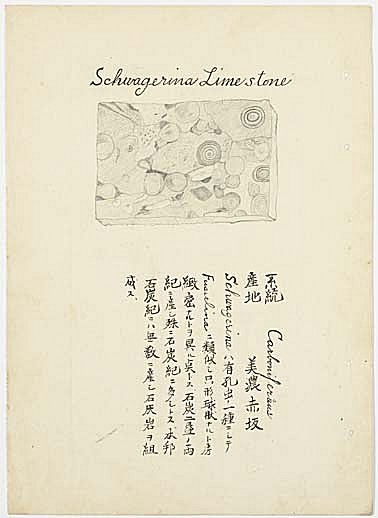 Schwagerina Limestone
系統 Carboniferius
産地 美濃赤坂
Schwagerinaハ有孔虫ノ一種ニシテ
Fusulinaニ類似シ只形球状ナルト房
緻密ナルトヲ異ル矣トス石炭二疊ノ両
紀ニ産シ殊ニ石炭紀ニ多シトス本邦
石炭紀ニハ無数ニ産シ石灰岩ヲ組
成ス